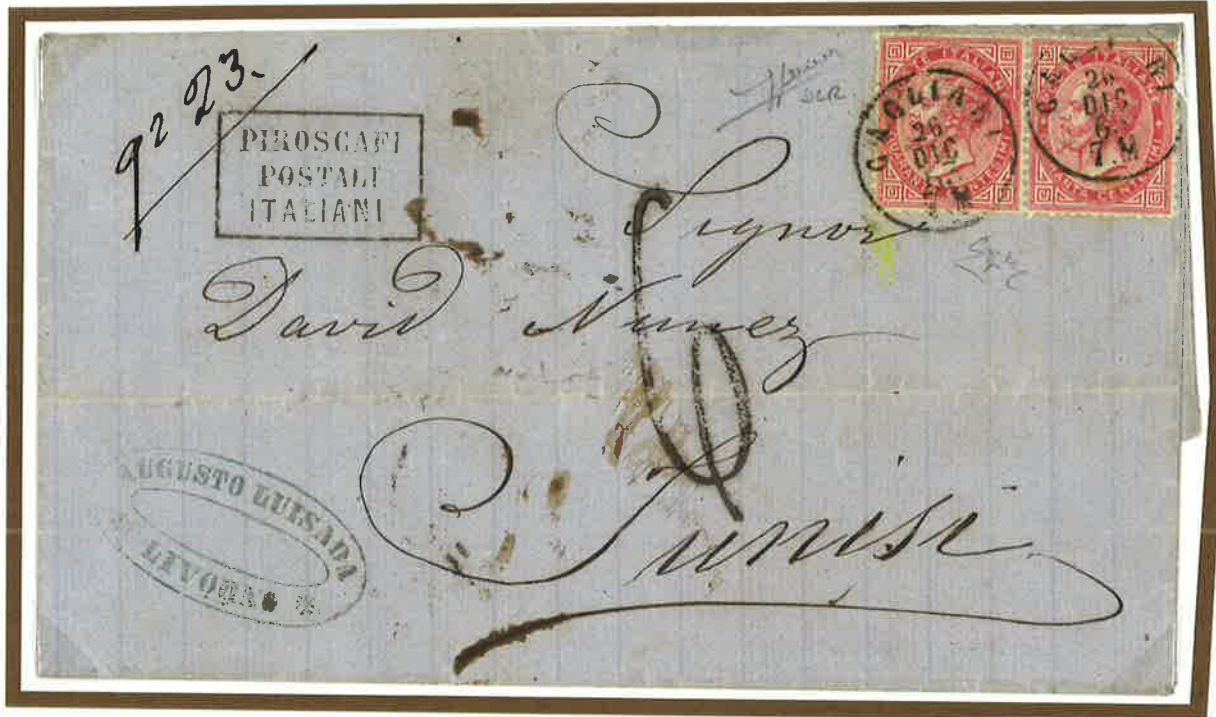 gr 23.
PIROSCAFI
POSTALI
ITALIANI
CAGLIARI
26
DIC
7 M
Signor
David Nunez
6
Tunisi
AUGUSTO LUISADA
LIVORNO